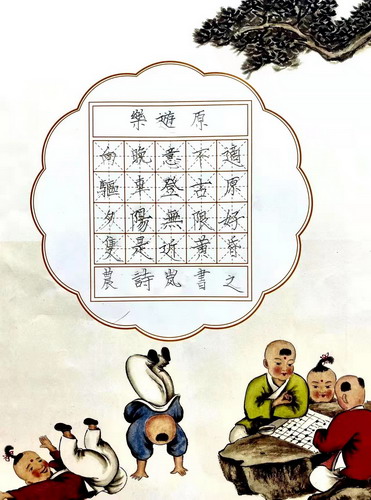 樂遊原
向晚意不適
驅車登古原
夕陽無限好
隻是近黃昏
農詩嵐書之